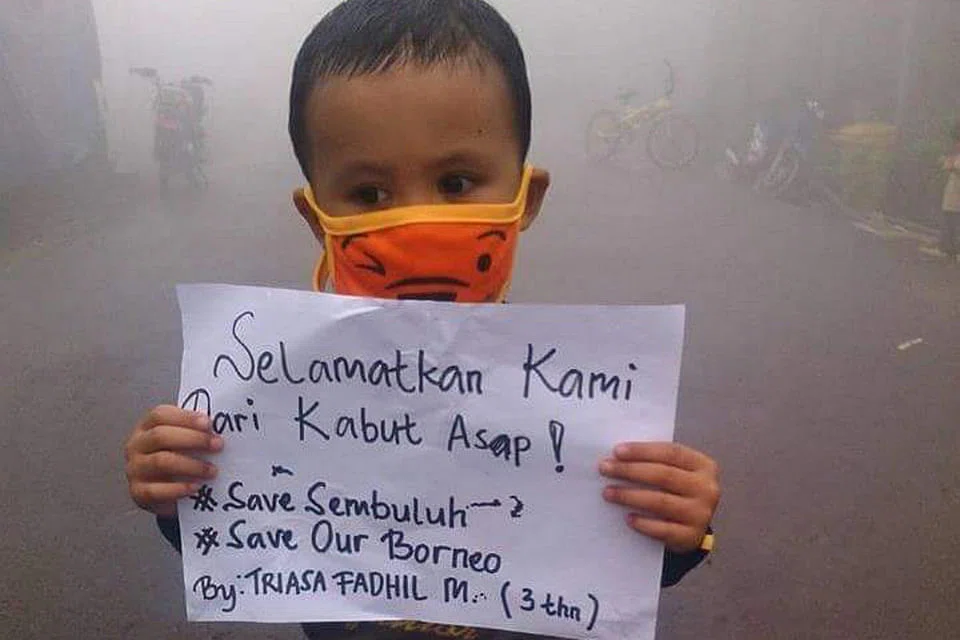 Selamatkan Kami
Dari Kabut Asap!
# Save Sembuluh → 2
# Save Our Borneo
By: TRIASA FADHIL M. (3 thn)